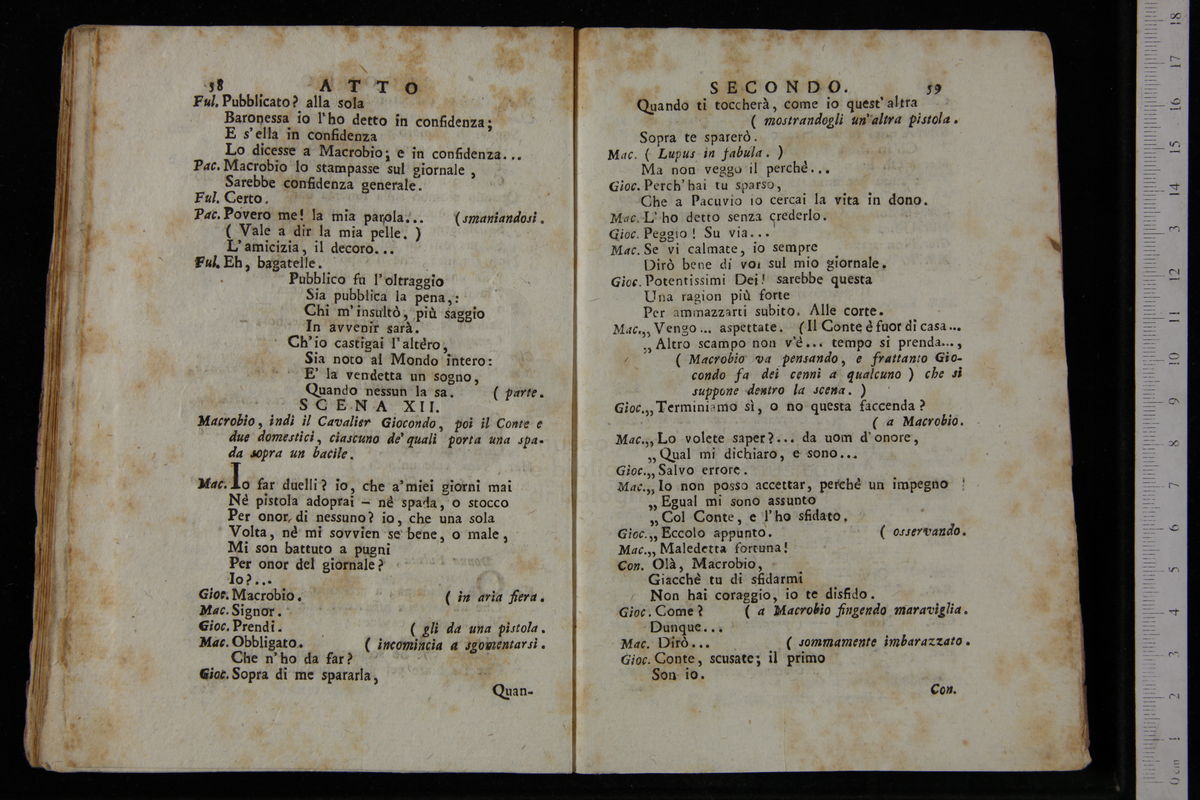 58 ATTO
Ful. Pubblicato? alla sola
Baronessa io l'ho detto in confidenza;
E s'ella in confidenza
Lo dicesse a Macrobio; e in confidenza...
Pac. Macrobio lo stampasse sul giornale,
Sarebbe confidenza generale.
Ful. Certo.
Pac. Povero me! la mia parola... (smaniandosi.
( Vale a dir la mia pelle. )
L'amicizia, il decoro...
Ful. Eh, bagatelle.
Pubblico fu l'oltraggio
Sia pubblica la pena,:
Chi m'insultò, più saggio
In avvenir sarà.
Ch'io castigai l'altèro,
Sia noto al Mondo intero:
E' la vendetta un sogno,
Quando nessun la sa. ( parte.
SCENA XII.
Macrobio, indi il Cavalier Giocondo, poi il Conte e
due domestici, ciascuno de' quali porta una spa-
da sopra un bacile.
Mac. Io far duelli? io, che a'miei giorni mai
Nè pistola adoprai – nè spada, o stocco
Per onor di nessuno? io, che una sola
Volta, nè mi sovvien se bene, o male,
Mi son battuto a pugni
Per onor del giornale?
Io?...
Gioc. Macrobio. ( in aria fiera.
Mac. Signor.
Gioc. Prendi. ( gli da una pistola.
Mac. Obbligato. ( incomincia a sgomentarsi.
Che n'ho da far?
Gioc. Sopra di me spararla,
Quan-
SECONDO. 59
Quando ti toccherà, come io quest'altra
( mostrandogli un'altra pistola.
Sopra te sparerò.
Mac. ( Lupus in fabula. )
Ma non veggo il perchè...
Gioc. Perch'hai tu sparso,
Che a Pacuvio io cercai la vita in dono.
Mac. L'ho detto senza crederlo.
Gioc. Peggio! Su via...
Mac. Se vi calmate, io sempre
Dirò bene di voi sul mio giornale.
Gioc. Potentissimi Dei! sarebbe questa
Una ragion più forte
Per ammazzarti subito. Alle corte.
Mac. „ Vengo... aspettate. (Il Conte è fuor di casa...
„ Altro scampo non v'è... tempo si prenda...,
( Macrobio va pensando, e frattanto Gio-
condo fa dei cenni a qualcuno ) che si
suppone dentro la scena. )
Gioc. „ Terminiamo sì, o no questa faccenda?
( a Macrobio.
Mac. „ Lo volete saper?... da uom d'onore,
„ Qual mi dichiaro, e sono...
Gioc. „ Salvo errore.
Mac. „ Io non posso accettar, perchè un impegno
„ Egual mi sono assunto
„ Col Conte, e l'ho sfidato.
Gioc. „ Eccolo appunto. ( osservando.
Mac. „ Maledetta fortuna!
Con. Olà, Macrobio,
Giacchè tu di sfidarmi
Non hai coraggio, io te disfido.
Gioc. Come? ( a Macrobio fingendo maraviglia.
Dunque...
Mac. Dirò... ( sommamente imbarazzato.
Gioc. Conte, scusate; il primo
Son io.
Con.
0 cm 1 2 3 4 5 6 7 8 9 10 11 12 13 14 15 16 17 18